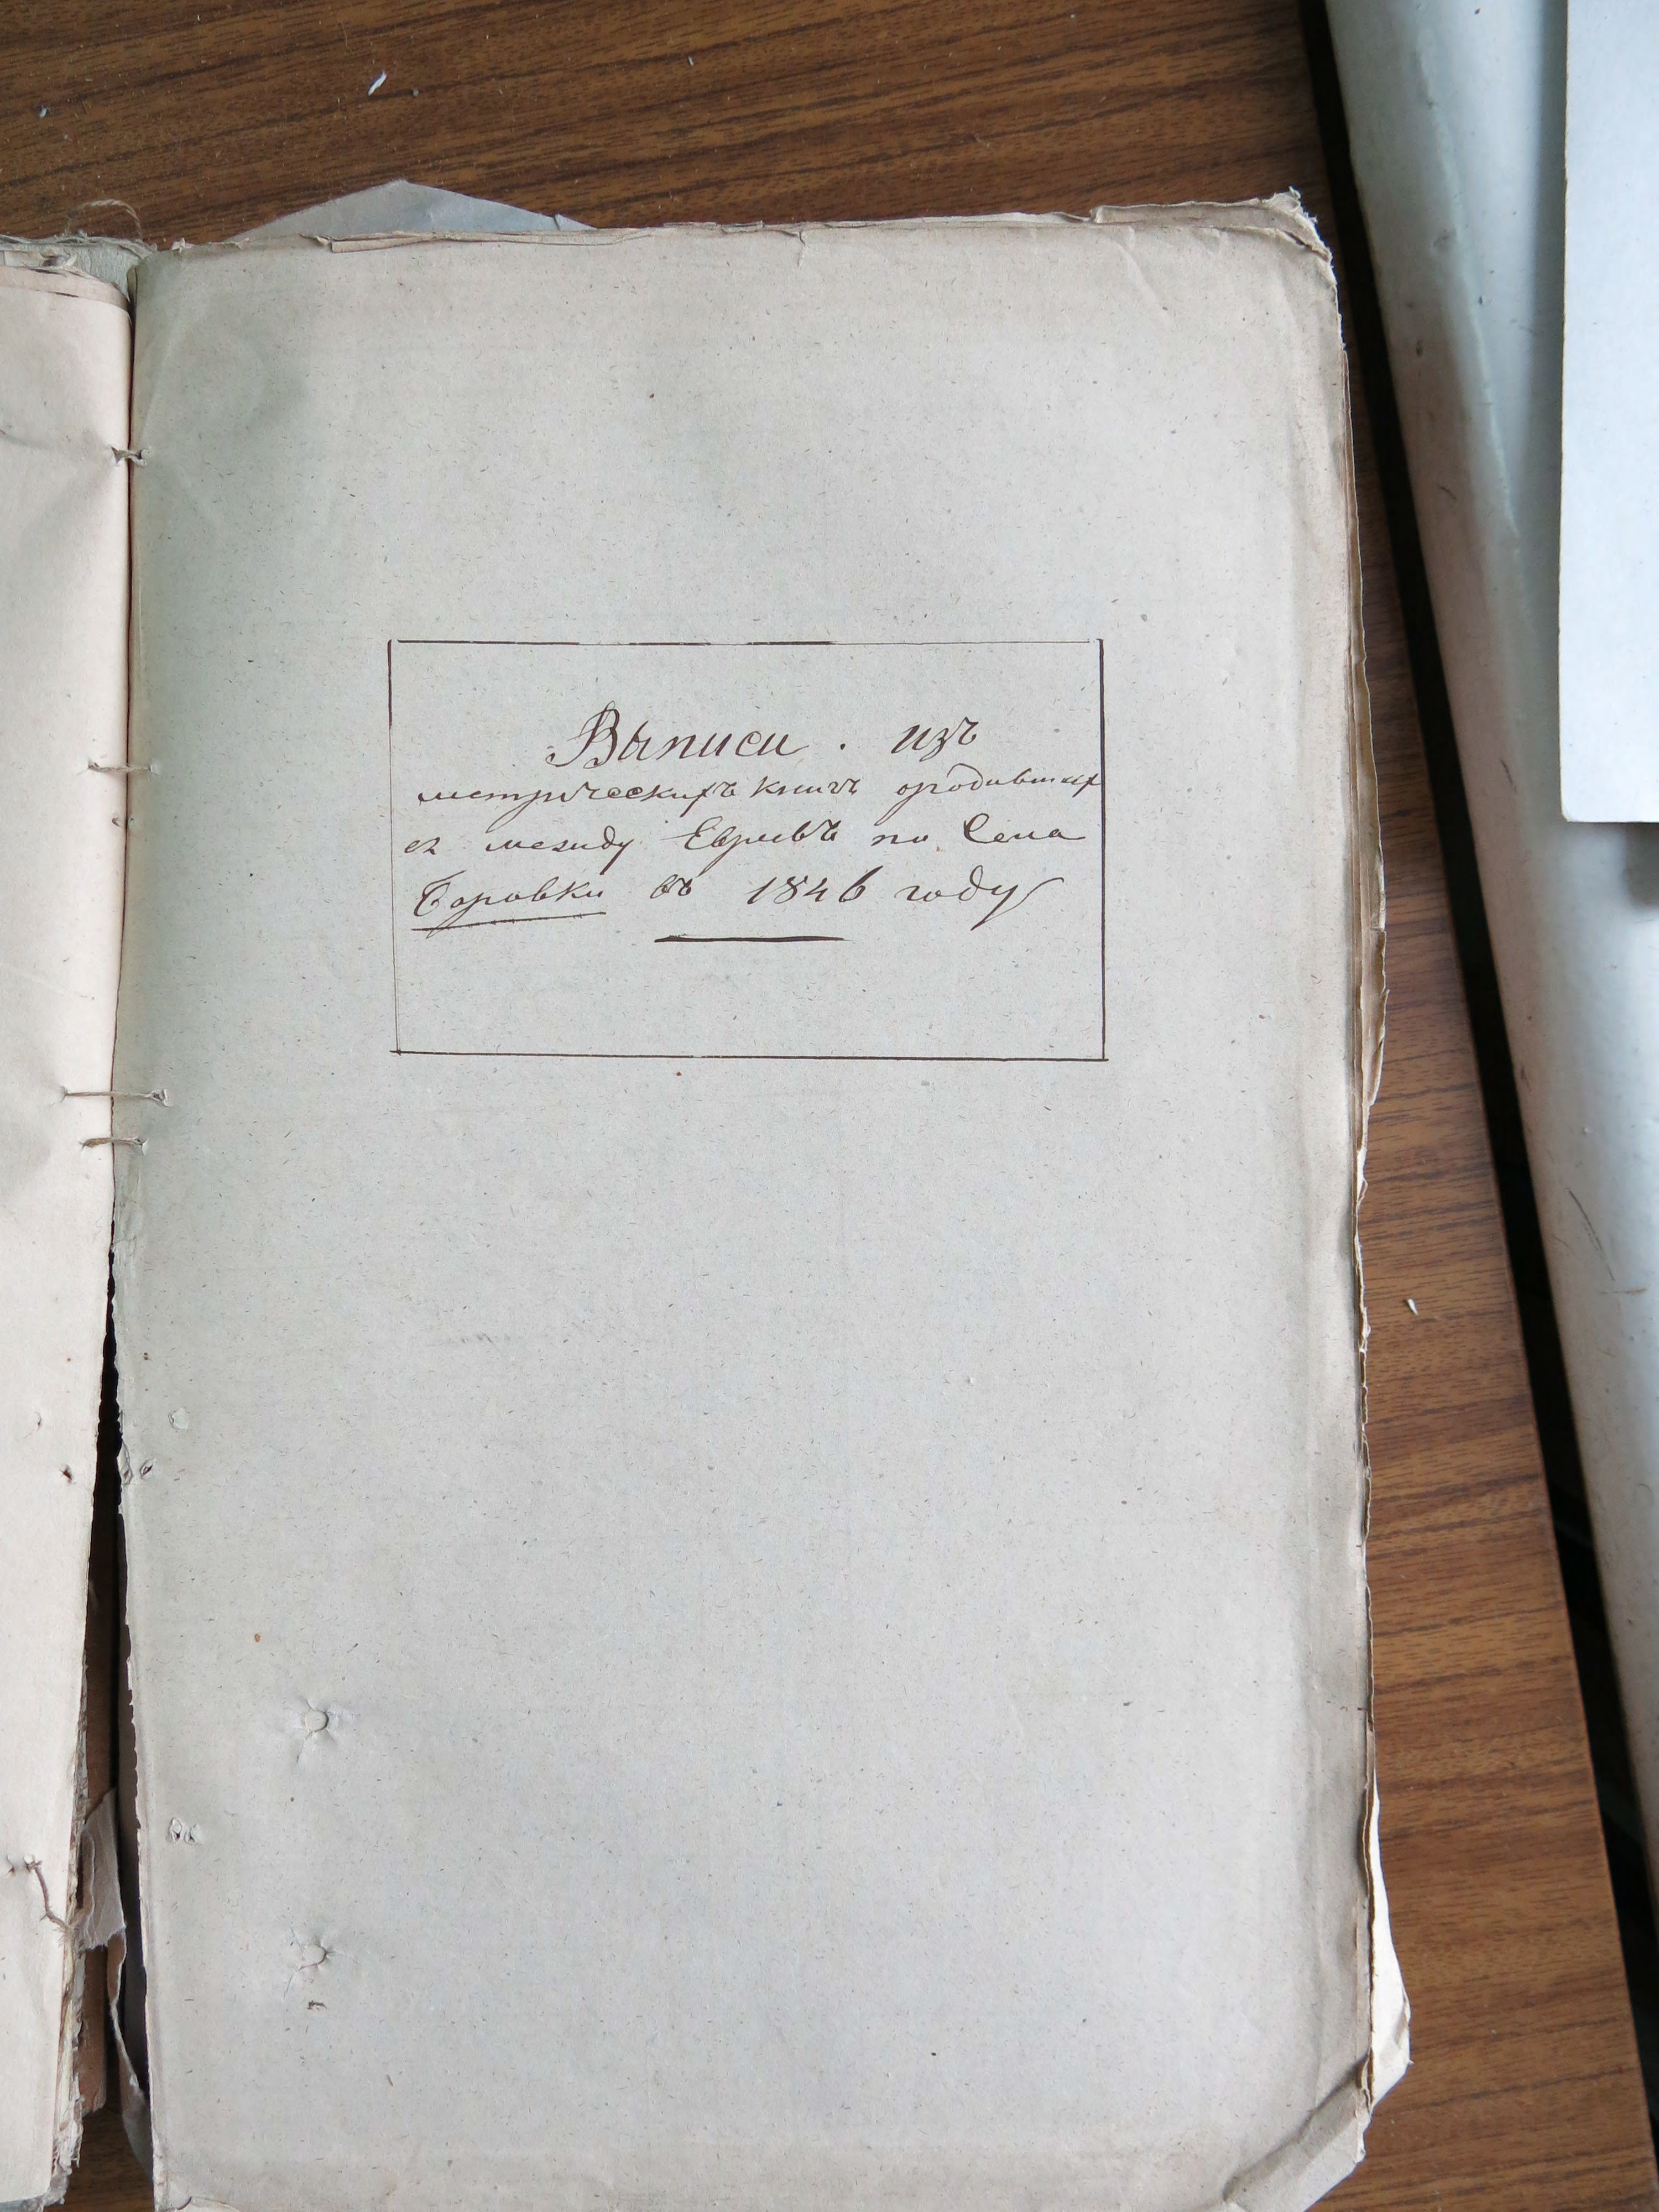 Выписи . изъ
метрическихъ книгъ ородивших
ся между Евреевъ по Села
Боровки въ 1846 году